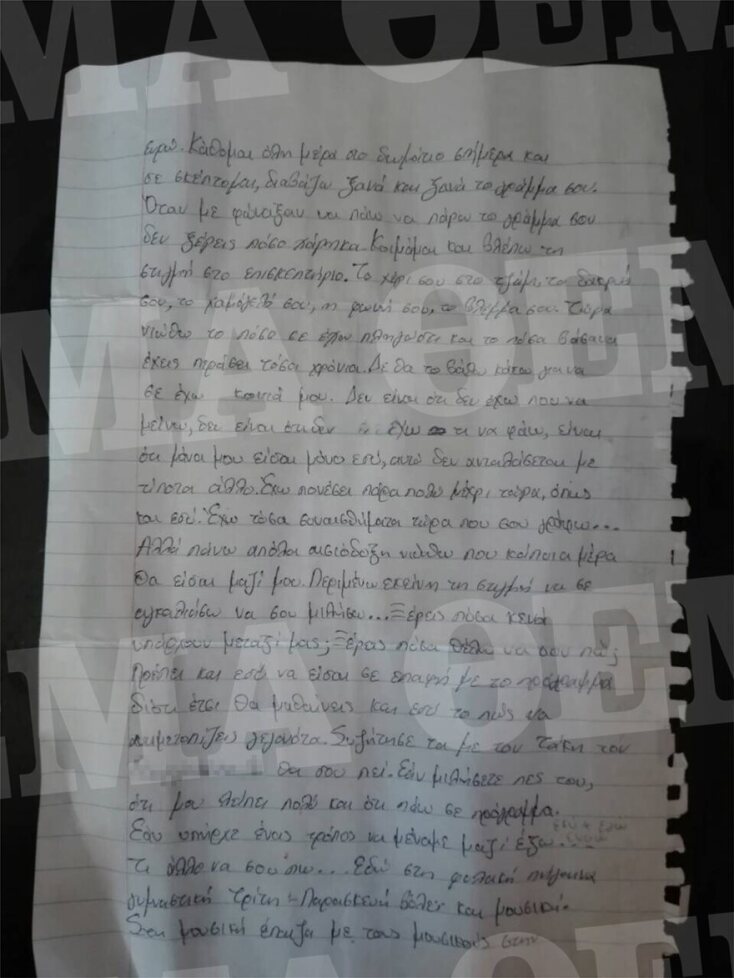 εγώ. Κάθομαι όλη μέρα στο δωμάτιο σήμερα και
σε σκέπτομαι, διαβάζω ξανά και ξανά το γράμμα σου.
Όταν με φώναξαν να πάω να πάρω το γράμμα σου
δεν ξέρεις πόσο χάρηκα. Κοιμάμαι και βλέπω τη
στιγμή στο επισκεπτήριο. Το χέρι σου στο τζάμι, το δάκρυ
σου, το χαμόγελό σου, η φωνή σου, το βλέμμα σου. Τώρα
νιώθω το πόσο σε έχω πληγώσει και το πόσα βάσανα
έχεις περάσει τόσα χρόνια. Δε θα το βάλω κάτω για να
σε έχω κοντά μου. Δεν είναι ότι δεν έχω που να
μείνω, δεν είναι ότι δεν έχω τι να φάω, είναι
ότι μάνα μου είσαι μόνο εσύ, αυτό δεν ανταλάσεται με
τίποτα άλλο. Έχω πονέσει πάρα πολύ μέχρι τώρα, όπως
και εσύ. Έχω τόσα συναισθήματα τώρα που σου γράφω...
Αλλά πάνω απ'όλα αισιόδοξη νιώθω που κάποια μέρα
θα είσαι μαζί μου. Περιμένω εκείνη τη στιγμή να σε
αγκαλιάσω να σου μιλήσω... Ξέρεις πόσα κενά
υπάρχουν μεταξύ μας; Ξέρεις πόσα θέλω να σου πώ;
Πρέπει και εσύ να είσαι σε επαφή με το πρόγραμμα
διότι έτσι θα μαθαίνεις και εσύ το πώς να
αντιμετωπίζεις γεγονότα. Συζήτησε τα με τον Τάκη τον
θα σου πει. Εάν μιλήσετε πες του,
ότι μου λείπει πολύ και ότι πάω σε πρόγραμμα.
Εάν υπήρχε ένας τρόπος να μέναμε μαζί έξω...
Τι άλλο να σου πω... Εδώ στη φυλακή πηγαίνω
γυμναστική Τρίτη - Παρασκευή βόλεϊ και μουσική.
Στη μουσική έπαιζα με τους μουσικούς στην
ΘΕΜΑ